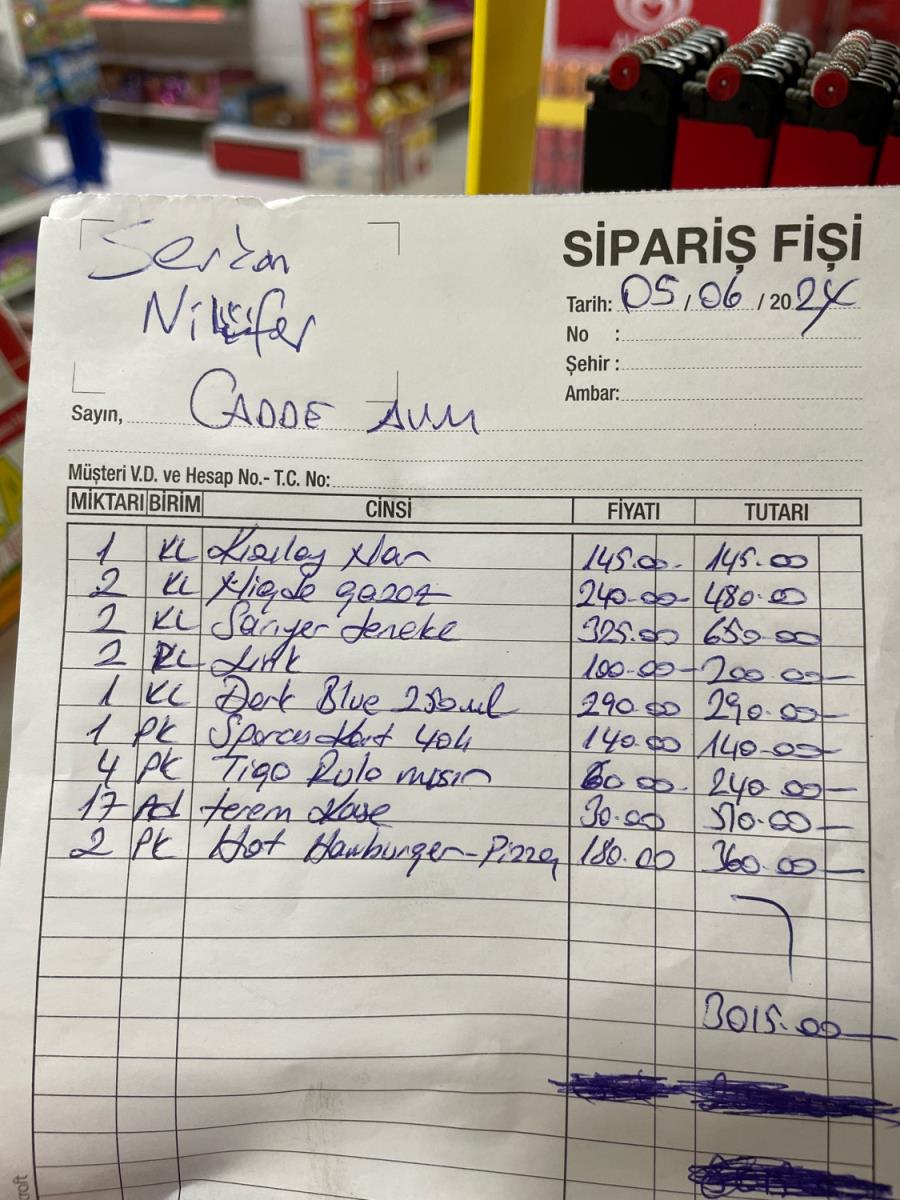 Serkan
Nilüfer
SİPARİŞ FİŞİ
Tarih: 05 / 06 / 2024
No :
Şehir :
Ambar:
Sayın, CADDE AVM
Müşteri V.D. ve Hesap No.- T.C. No:
MİKTARI BİRİM CİNSİ FİYATI TUTARI
1 KL Kızılay Nar 145.00 145.00
2 KL Niğde gazoz 240.00 480.00
2 KL Sarıyer teneke 325.00 650.00
2 KL 100.00 200.00
1 KL Dark Blue 250 ml 290.00 290.00
1 PK 140.00 140.00
4 PK Tigo Rulo mısın 60.00 240.00
17 Ad Kase 30.00 510.00
2 PK Hot Hamburger-Pizza 180.00 360.00
3015.00